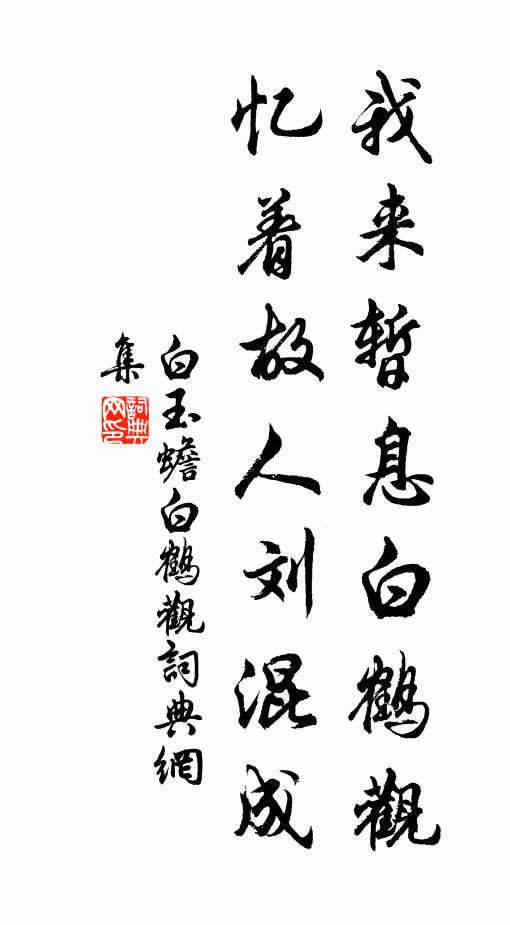 我来暂息白鹤觀
忆着故人刘混成
白玉蟾白鶴觀詞典網
集
詞典網印